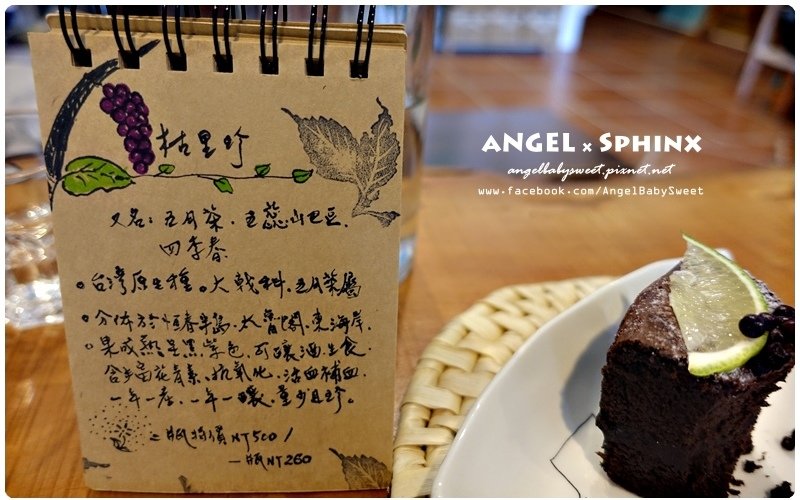 桔里珍
又名：五月茶．五蕊山巴豆．
四季春
台灣原生種。大戟科．五月茶屬
分佈於恆春半島．太魯閣．東海岸．
果成熟呈黑紫色．可釀酒．生食．
含多量花青素、抗氧化．活血補血．
一年一產、一年一釀、量少且珍。
二瓶特價NT500／
一瓶NT260
ANGEL x SPHINX
angelbabysweet.pixnet.net
www.facebook.com/AngelBabySweet